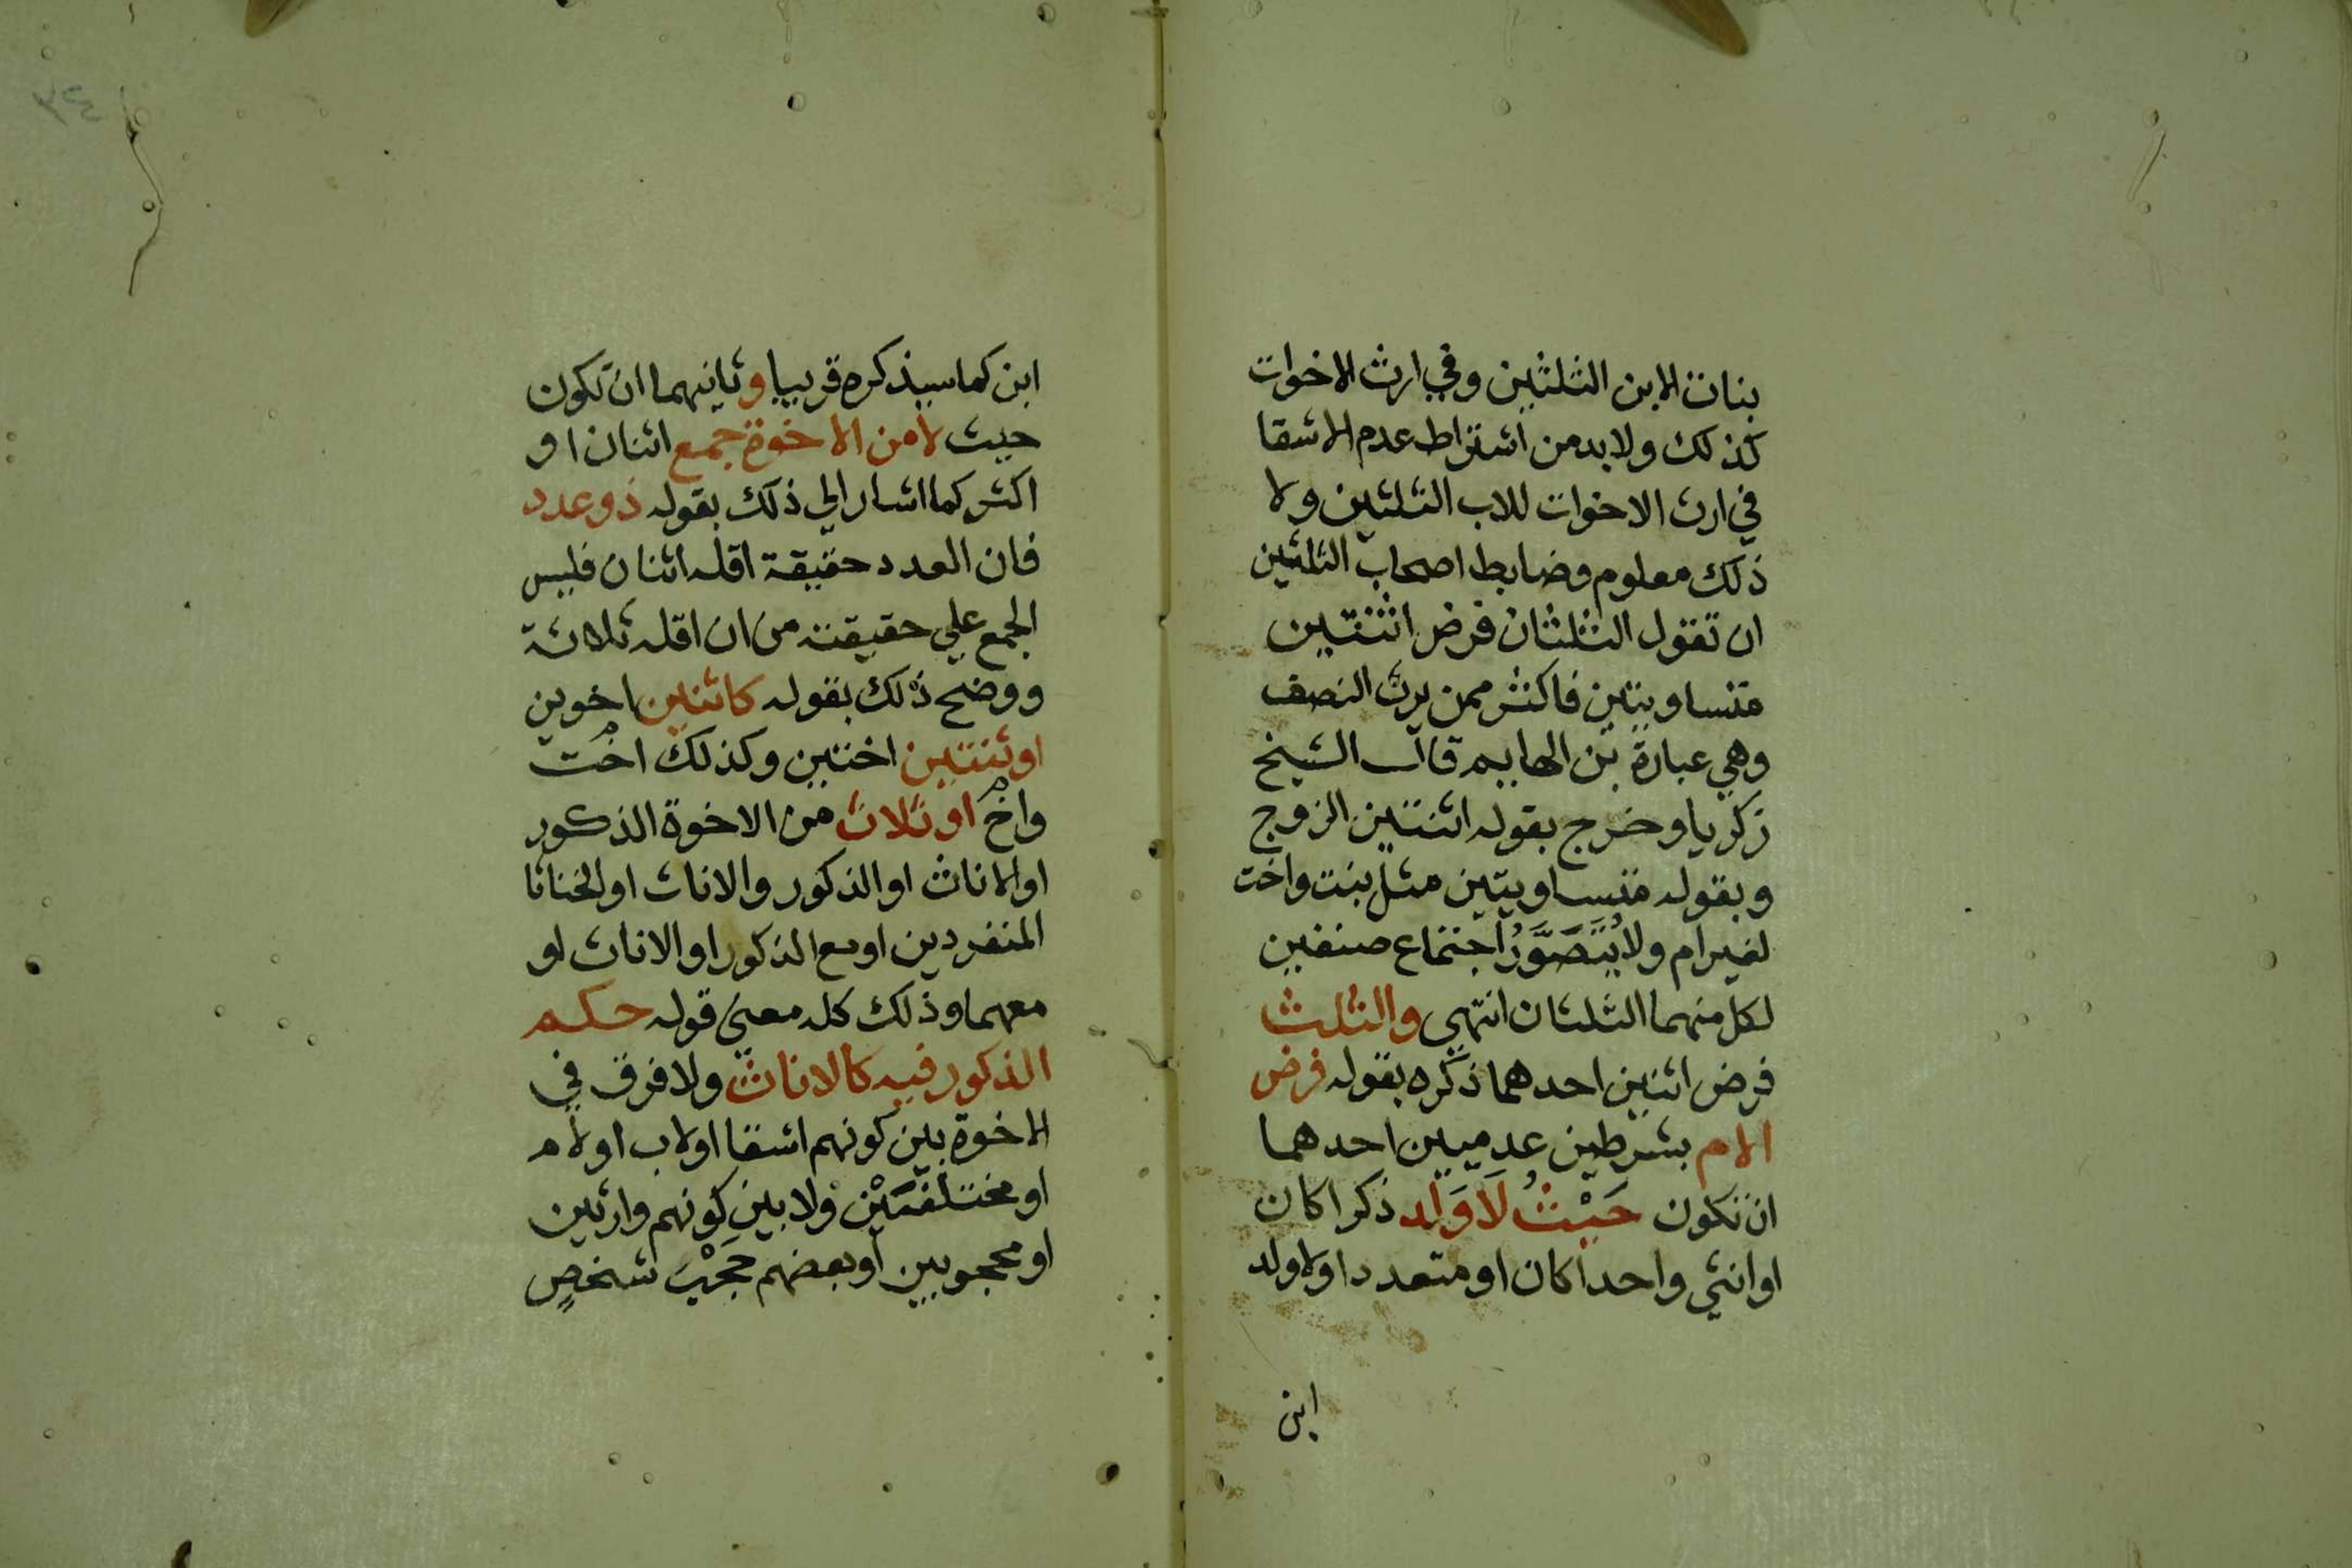 بنات الابن الثلثين وفي ارث الاخوات
كذلك ولابد من اشتراط عدم الاشقا
في ارث الاخوات للاب الثلثين ولا
ذلك معلوم وضابط اصحاب الثلثين
ان تقول الثلثان فرض اثنتين
متساويتين فاكثر ممن يرث النصف
وهي عبارة بن الهايم قال الشيخ
زكريا وخرج بقوله اثنتين الزوج
وبقوله متساويتين مثل بنت واخت
لغير ام ولا يُتَصَوَّرُ اجتماع صنفين
لكل منهما الثلثان انتهي والثلث
فرض اثنين احدهما ذكره بقوله فرض
الام بشرطين عدميين احدهما
ان تكون حَيْثُ لَا وَلَد ذكرا كان
او انثي واحدا كان او متعددا ولا ولد
ابن
ابن كما سيذكره قريبا وثانيهما ان تكون
حيث لا من الاخوة جمع اثنان او
اكثر كما اشار الي ذلك بقوله ذو عدد
فان العدد حقيقة اقله اثنان فليس
الجمع علي حقيقته من ان اقله ثلاثة
ووضح ذلك بقوله كاثنين اخوين
او ثنتين اختين وكذلك اخت
واخ او ثلاث من الاخوة الذكور
او الاناث او الذكور والاناث او الخناثا
المنفردين او مع الذكور او الاناث او
معهما وذلك كله معني قوله حكم
الذكور فيه كالاناث ولا فرق في
الاخوة بين كونهم اشقا او لاب او لام
او مختلفَيْن ولا بين كونهم وارثين
او محجوبين او بعضهم حَجْبَ شخصٍ